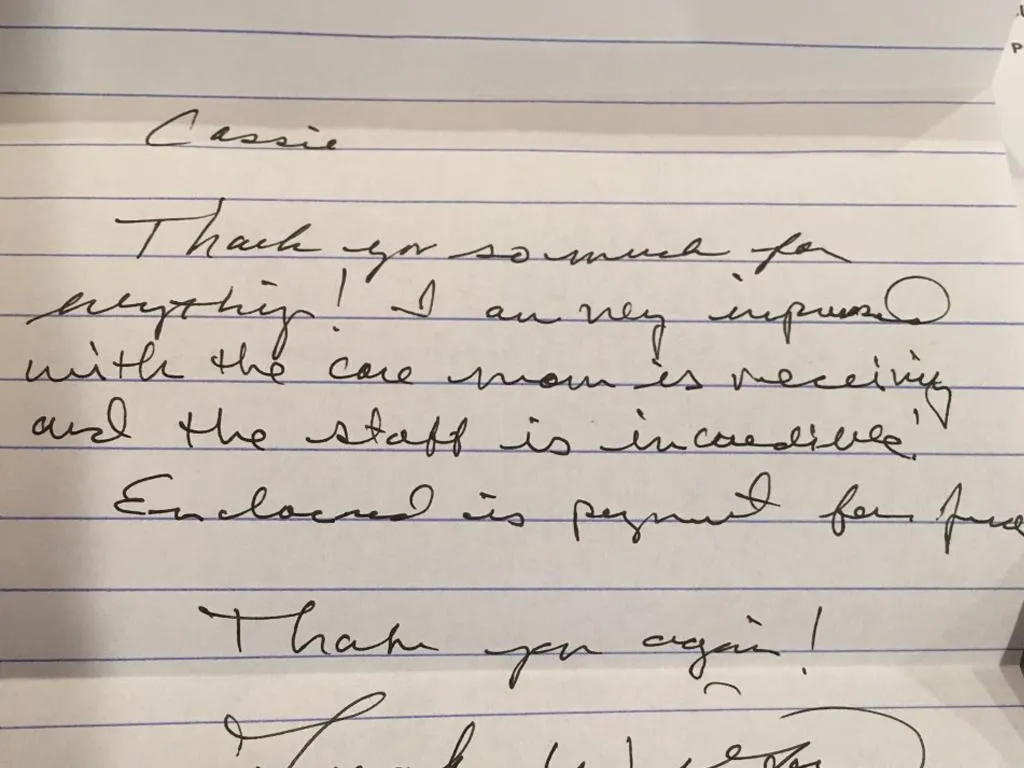 Cassie
Thank you so much for
everything! I am very impressed
with the care mom is receiving
and the staff is incredible!
Enclosed is payment for
Thank you again!